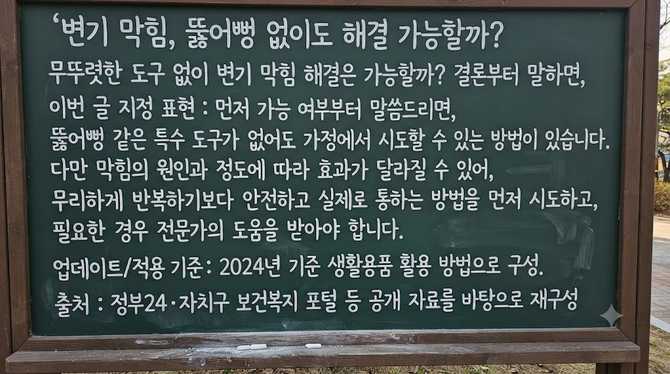 ‘변기 막힘, 뚫어뻥 없이도 해결 가능할까?
무뚜렷한 도구 없이 변기 막힘 해결은 가능할까? 결론부터 말하면,
이번 글 지정 표현 : 먼저 가능 여부부터 말씀드리면,
뚫어뻥 같은 특수 도구가 없어도 가정에서 시도할 수 있는 방법이 있습니다.
다만 막힘의 원인과 정도에 따라 효과가 달라질 수 있어,
무리하게 반복하기보다 안전하고 실제로 통하는 방법을 먼저 시도하고,
필요한 경우 전문가의 도움을 받아야 합니다.
업데이트/적용 기준 : 2024년 기준 생활용품 활용 방법으로 구성.
출처 : 정부24·자치구 보건복지 포털 등 공개 자료를 바탕으로 재구성